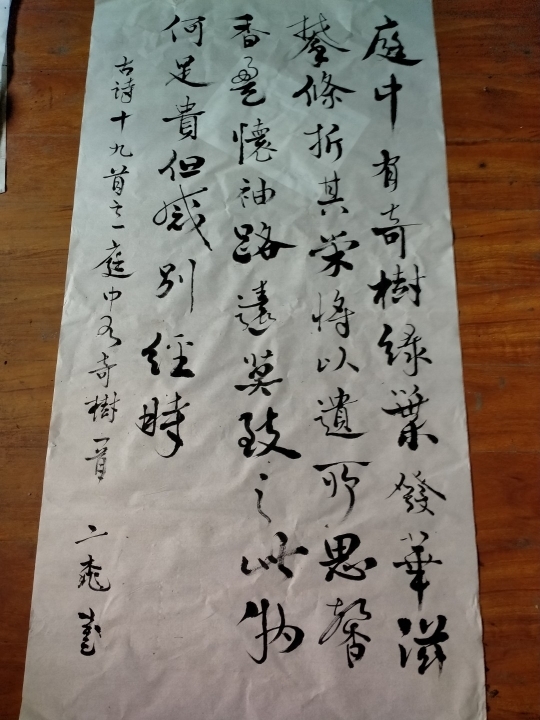 庭中有奇樹綠葉發華滋
攀條折其榮將以遺所思馨
香盈懷袖路遠莫致之此物
何足貴但感別經時
古詩十九首之一庭中有奇樹一首 二書